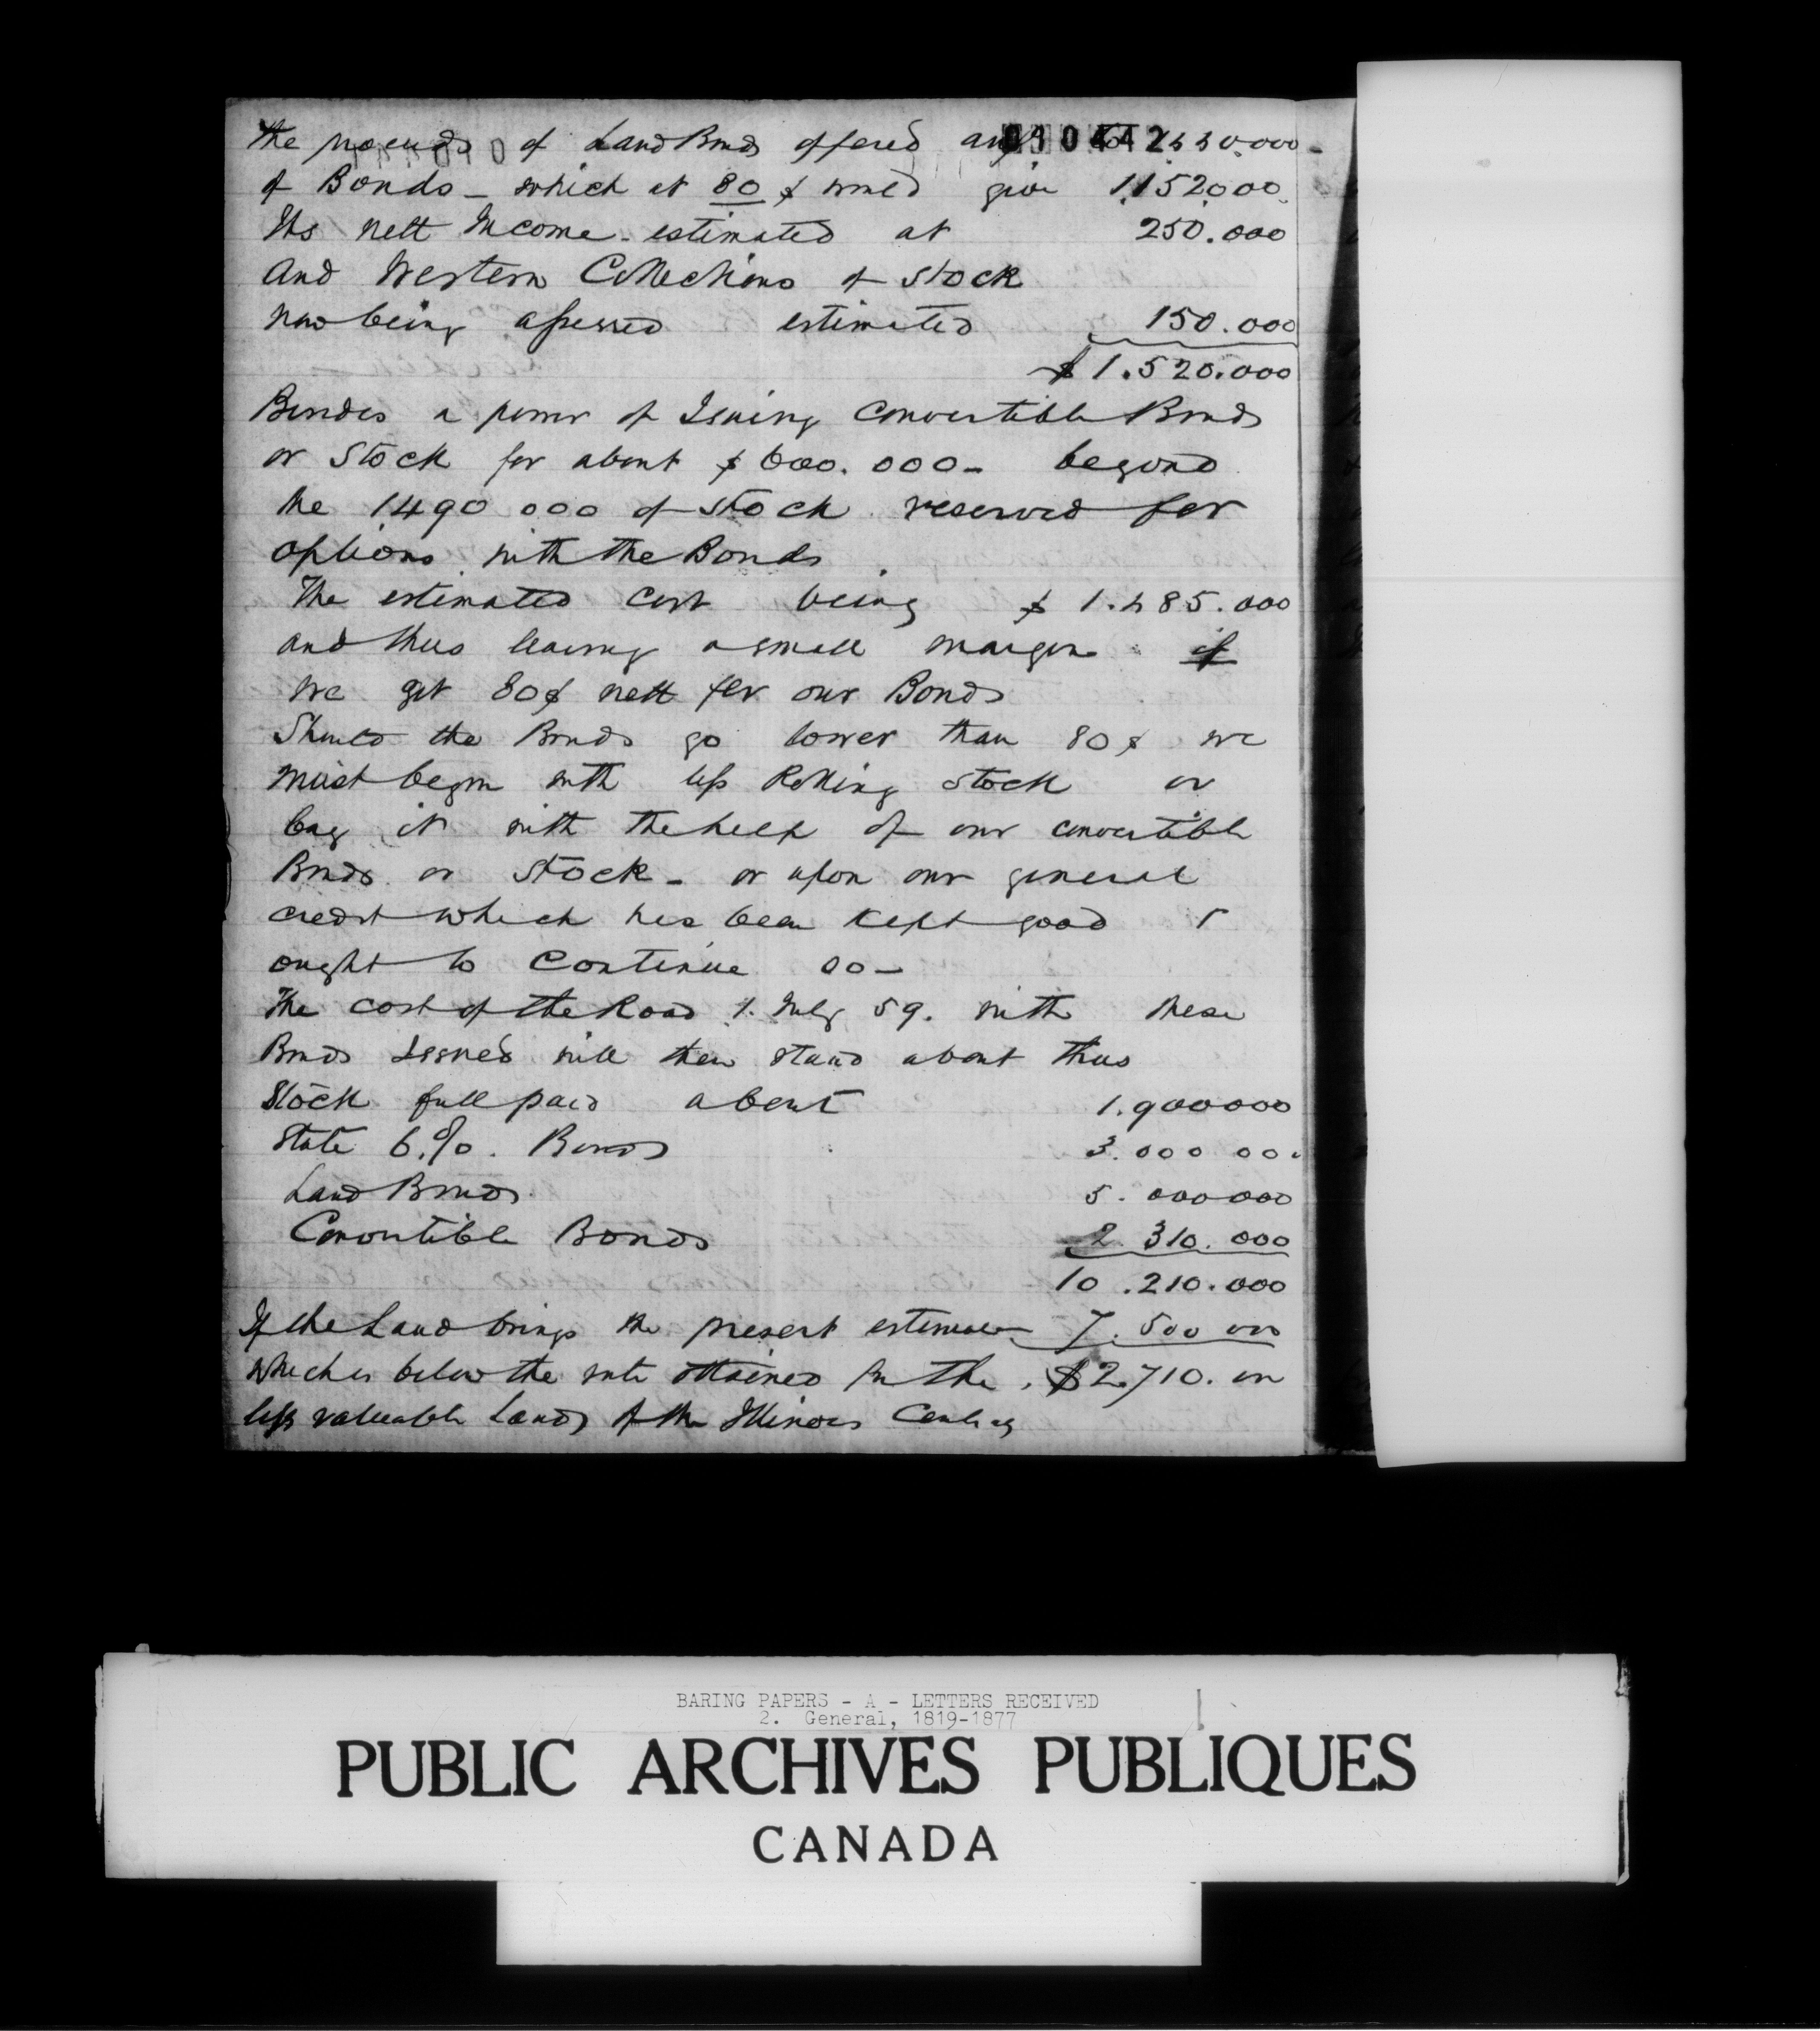 the proceeds of Land Bonds offered 010442
of Bonds - which at 80 ¢ would give 1.152.000.
Its nett Income - estimated at 250.000
And Western Collections of Stock
now being assessed estimated 150.000
$ 1.520.000
Besides a power of Issuing Convertible Bonds
or Stock for about $ 600.000- beyond
the 1490 000 of Stock reserved for
options with the Bonds
The estimated cost being $ 1.485.000
and thus leaving a small margin if
we get 80¢ nett for our Bonds
Should the Bonds go lower than 80 ¢ we
must begin with less Rolling Stock or
buy it with the help of our convertible
Bonds or Stock - or upon our general
credit which has been Kept good &
ought to Continue so -
The cost of the Road 1. July 59. with these
Bonds Issued will then stand about thus
Stock full paid about 1.900000
State 6.%. Bonds 3.000 000
Land Bonds 3. 000000
Convertible Bonds 2 310. 000
10 .210.000
If the Land brings the present estimate 7.500 000
which is below the rate attained for the $2.710. 000
less valuable Lands of the Illinois Central
BARING PAPERS - A - LETTERS RECEIVED
2. General, 1819-1877
PUBLIC ARCHIVES PUBLIQUES
CANADA